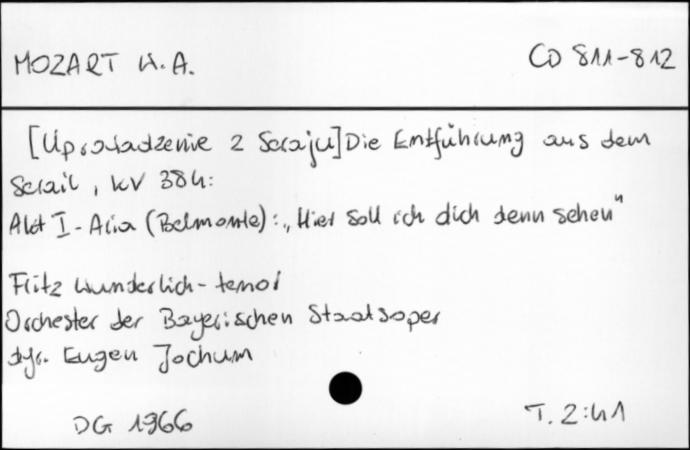 MOZART W.A.
CD 811-812
[Uprowadzenie z Seraju] Die Entführung aus dem
Serail, KV 384:
Akt I - Aria (Belmonte): „Hier soll ich dich denn sehen"
Fritz Wunderlich - tenor
Orchester der Bayerischen Staatsoper
dyr. Eugen Jochum
DG 1966
T. 2:41